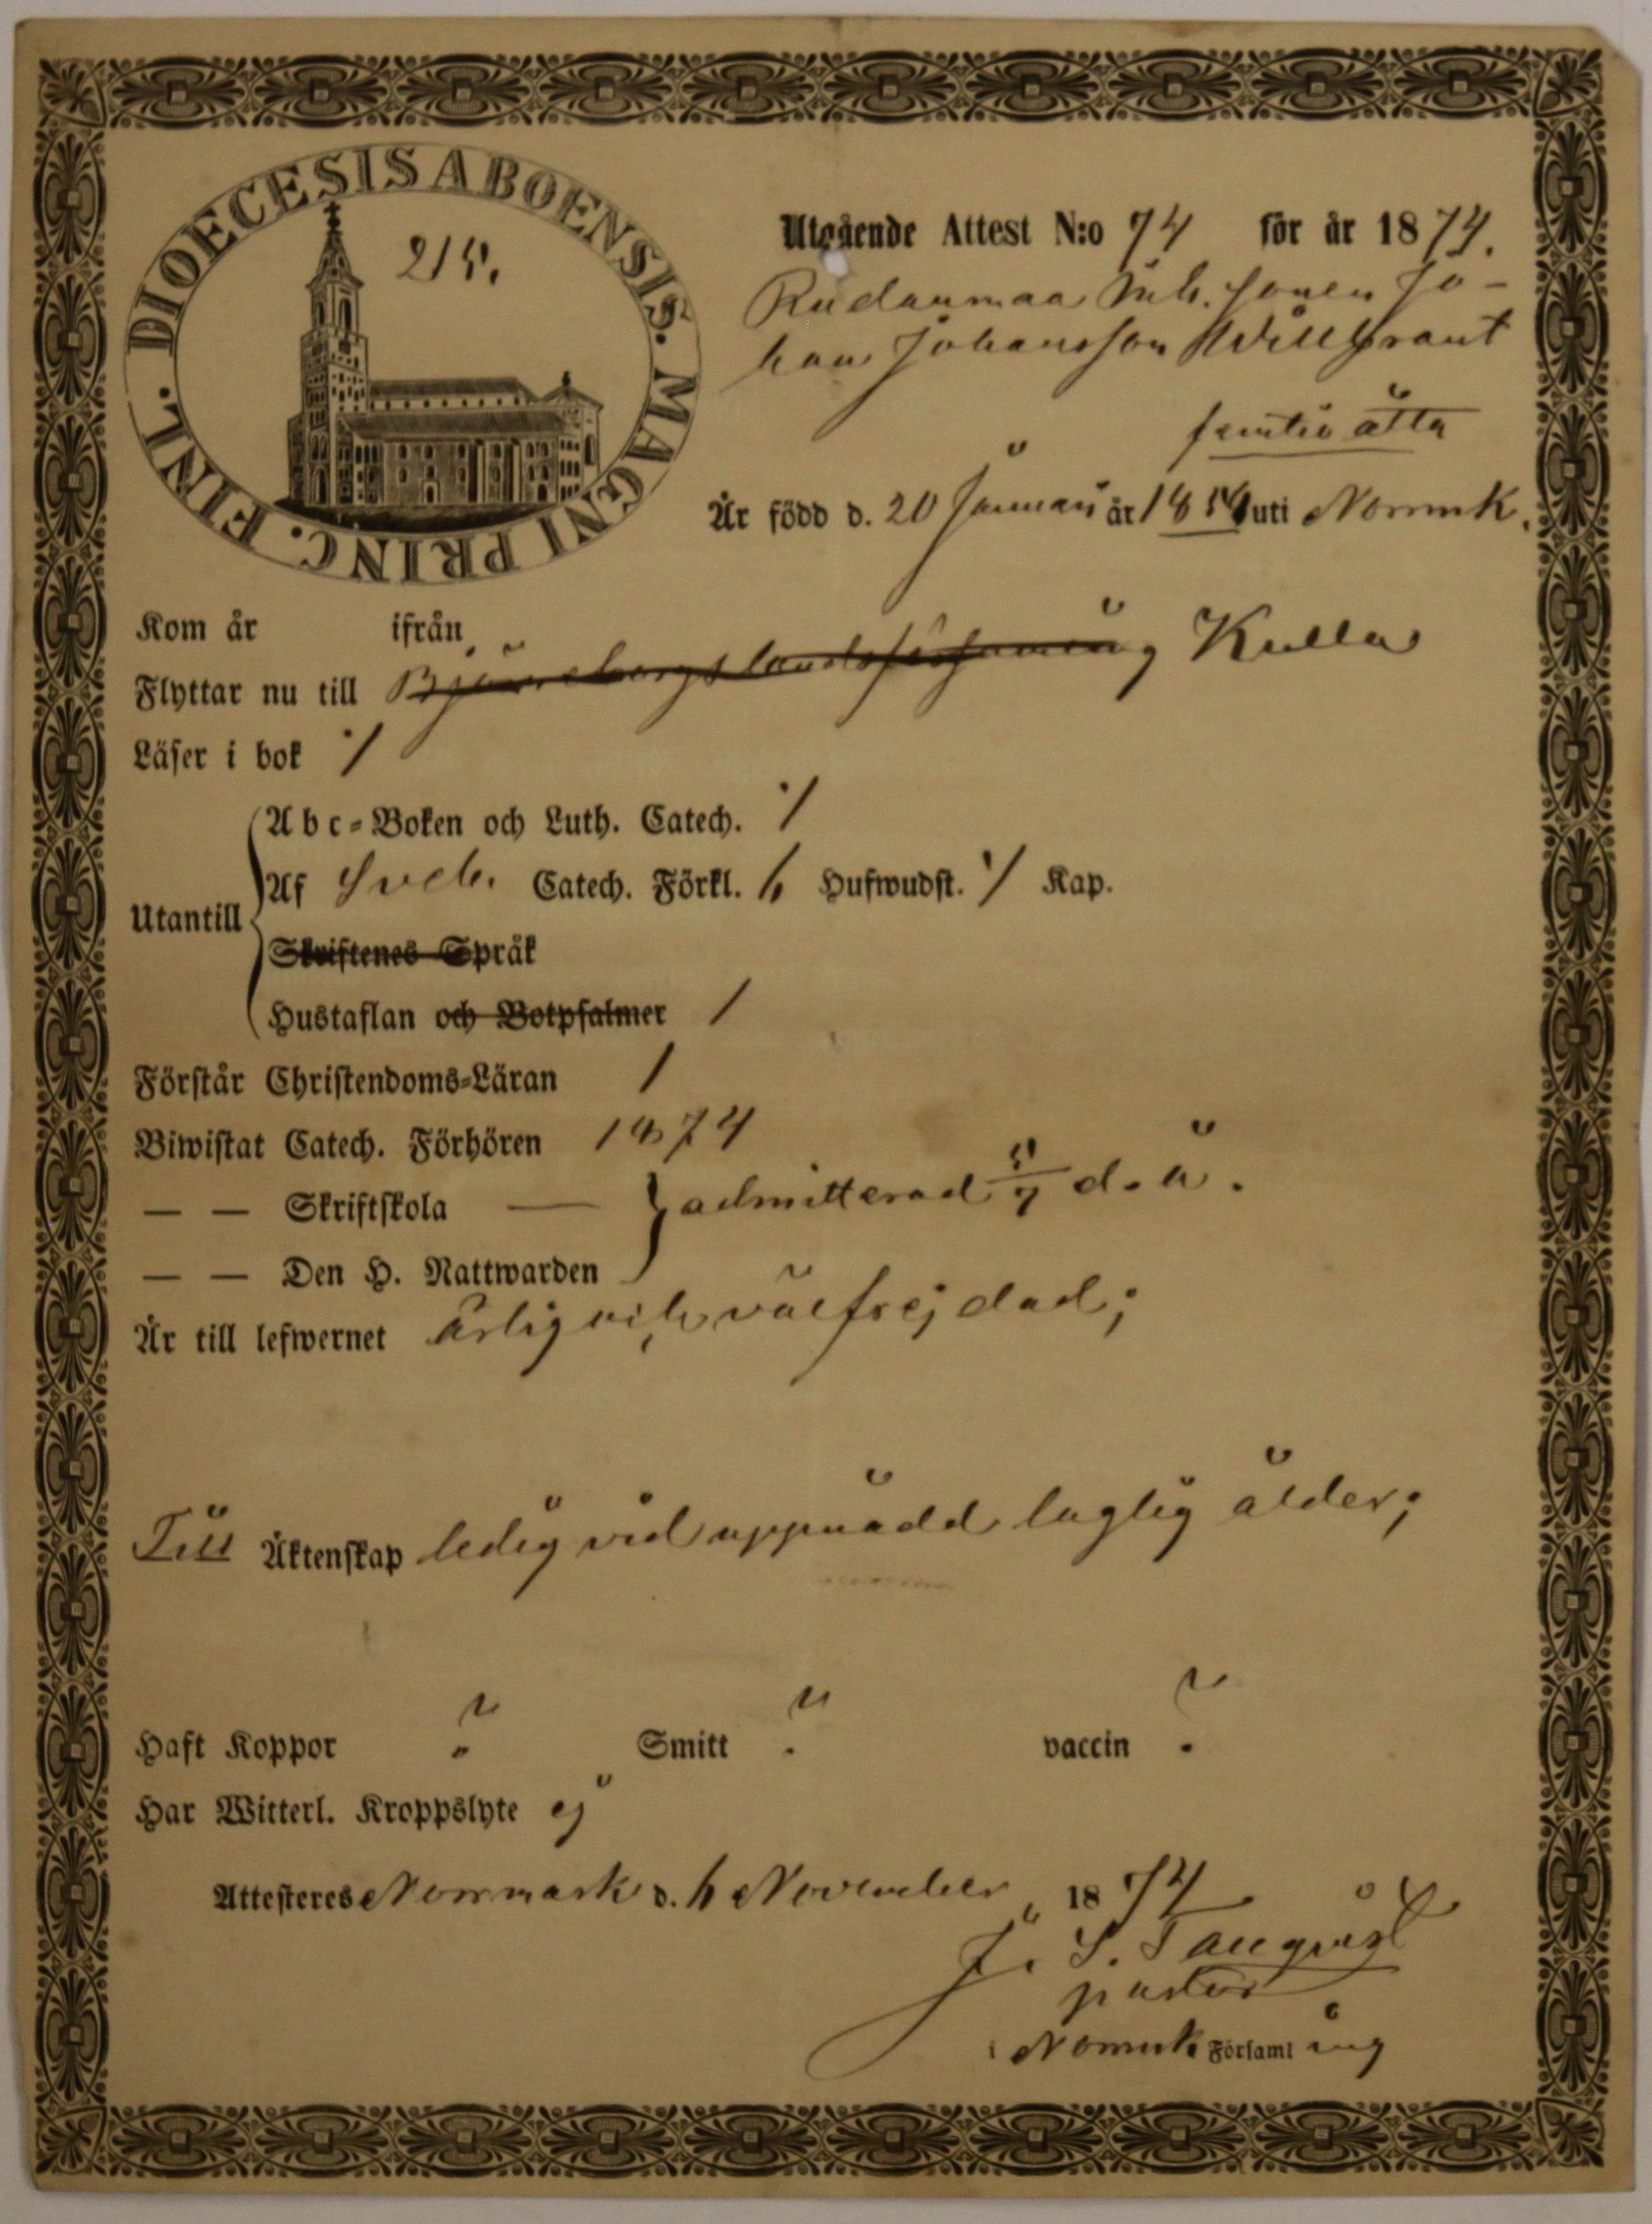 DIOECESIS ABOENSIS. MAGNI PRINC. FINL.
215.
Utgående Attest N:o 74 för år 1874.
Rudanmaa Inh. sonen Jo-
han Johansson Willgrant
femtio åtta
Är född d. 20 Januari år 1858 uti Norrmk.
Kom år ifrån
Flyttar nu till Björneborgs landsförsamling Kulla
Läser i bok /
Utantill
Abc-Boken och Luth. Catech. /
Af Sveb. Catech. Förkl. 6 Hufwudst. / Kap.
Skriftenes Språk
Hustaflan och Botpsalmer /
Förstår Christendoms-Läran /
Biwistat Catech. Förhören 1874
— — Skriftskola — } admitterad 5/7 d. å.
— — Den H. Nattwarden
Är till lefwernet ärlig och välfrejdad;
Till Äktenskap ledig vid uppnådd laglig ålder;
Haft Koppor ? Smitt ? vaccin ?
Har Witterl. Kroppslyte ej
Attesteres Norrmark d. 6 November 1874
J. S. Tallqvist
pastor
i Norrmk Församling